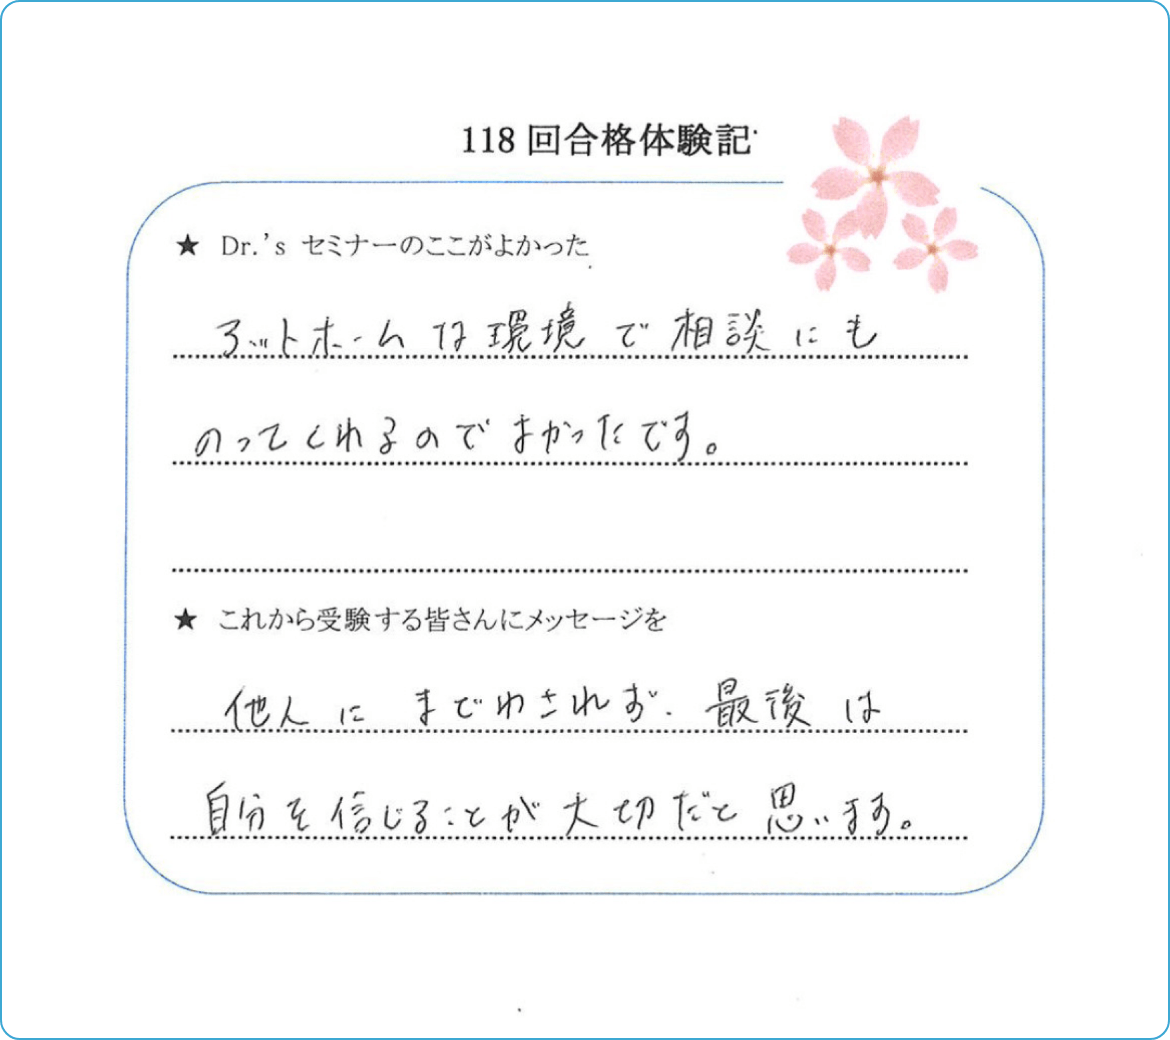 118回合格体験記
★ Dr.'s セミナーのここがよかった
アットホームな環境で相談にも
のってくれるのでよかったです。
★ これから受験する皆さんにメッセージを
他人にまどわされず、最後は
自分を信じることが大切だと思います。